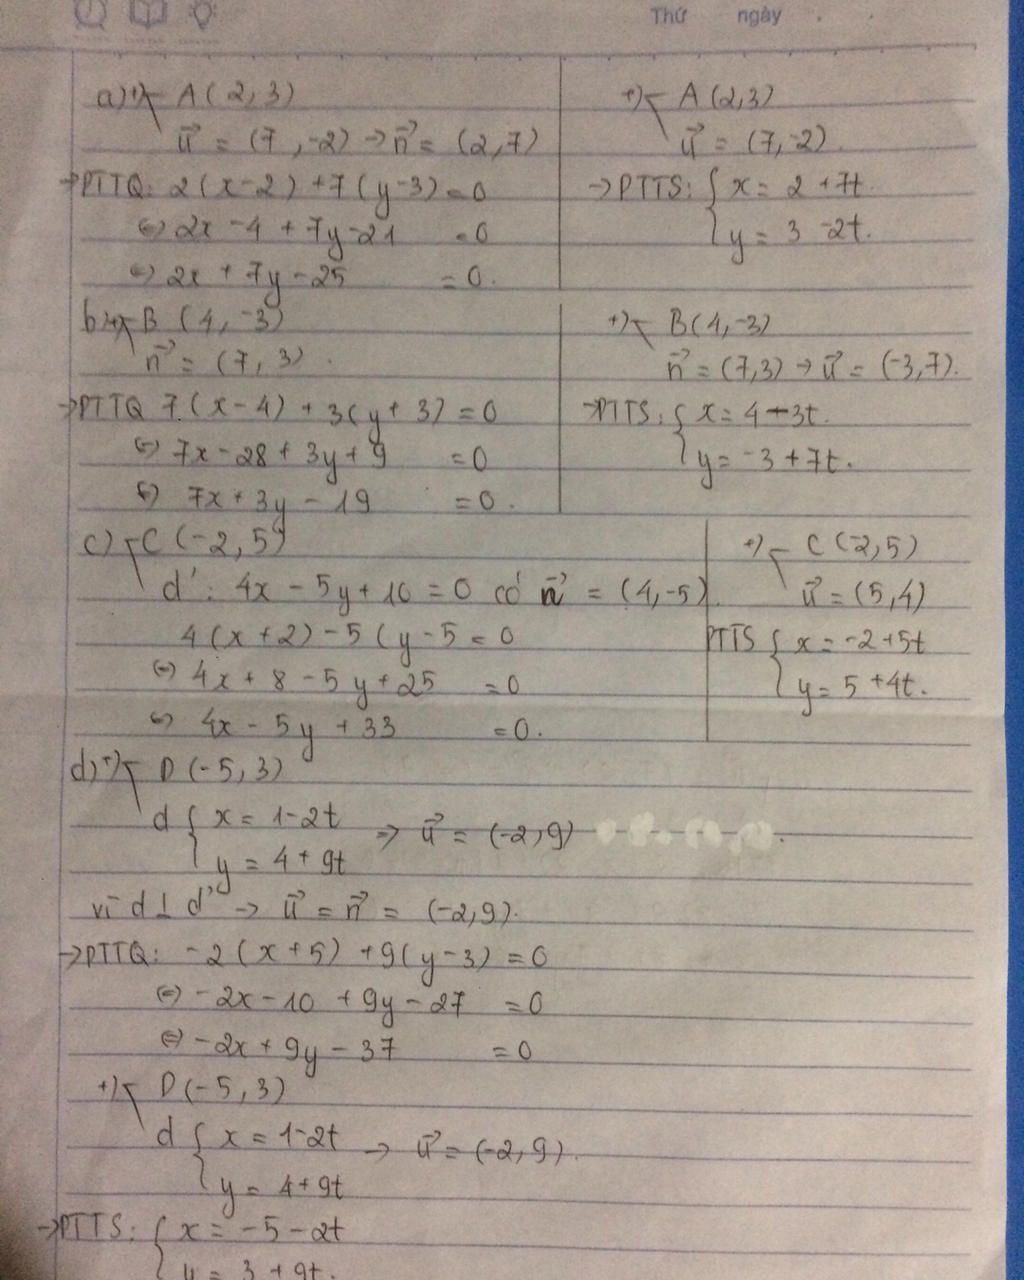 Thứ ngày .
a) +) A (2, 3)
u⃗ = (7, -2) → n⃗ = (2, 7)
→ PTTQ: 2(x-2) + 7(y-3) = 0
⇔ 2x - 4 + 7y - 21 = 0
⇔ 2x + 7y - 25 = 0.
+) A (2,3)
u⃗ = (7,-2).
→ PTTS: { x = 2 + 7t
y = 3 - 2t.
b) +) B (4, -3)
n⃗ = (7, 3).
→ PTTQ 7(x-4) + 3(y+3) = 0
⇔ 7x - 28 + 3y + 9 = 0
⇔ 7x + 3y - 19 = 0.
+) B(4,-3)
n⃗ = (7,3) → u⃗ = (-3,7).
→ PTTS: { x = 4 - 3t.
y = -3 + 7t.
c) C (-2, 5)
d': 4x - 5y + 10 = 0 có n⃗ = (4,-5).
4(x+2) - 5(y-5 = 0
⇔ 4x + 8 - 5y + 25 = 0
⇔ 4x - 5y + 33 = 0.
+) C (-2,5)
u⃗ = (5,4)
PTTS { x = -2 + 5t
y = 5 + 4t.
d) +) D (-5, 3)
d { x = 1-2t → u⃗ = (-2,9)
y = 4 + 9t
vì d ⊥ d' → u⃗ = n⃗ = (-2,9).
→ PTTQ: -2(x+5) + 9(y-3) = 0
⇔ -2x - 10 + 9y - 27 = 0
⇔ -2x + 9y - 37 = 0
+) D (-5, 3)
d { x = 1-2t → u⃗ = (-2,9).
y = 4+9t
→ PTTS: { x = -5 - 2t
y = 3 + 9t.